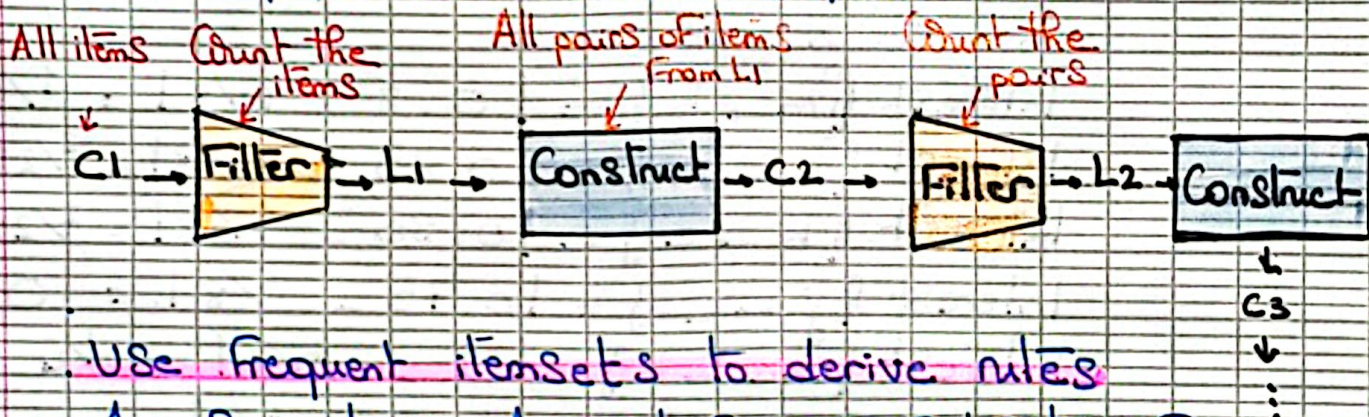 All items Count the items
All pairs of items From L1
Count the pairs
C1 → Filter → L1 → Construct → C2 → Filter → L2 → Construct
↓
C3
↓
⋮
Use frequent itemsets to derive rules